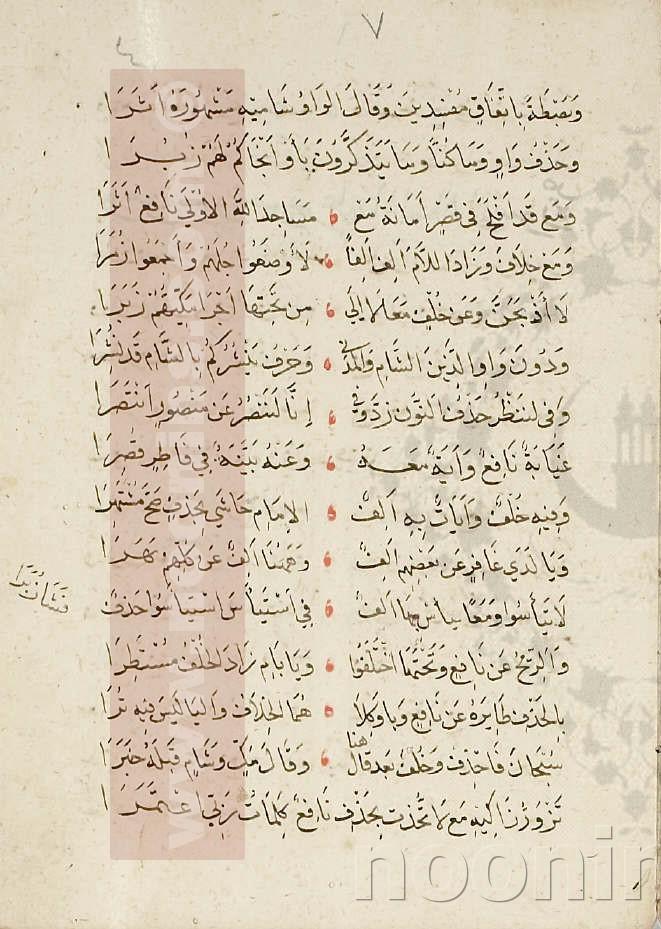 ٧
وبصطة باتفاق مفسدين وقال الواو شامية مشهورة اثرا
وحذف واو وما كنا وما يتذكرون يا وانجاكم لهم زبرا
ومع قد افلح في قصر امانة مع مساجد الله الاولى نافع اثرا
ومع خلاف وزاد اللام الف الفا لا أوضعوا جلهم واجمعوا زمرا
لا أذبحن وعن خلف معا لا إلى من تحتها آخرا مكيهم زبرا
ودون واو الذين الشام والمدني وحرف ينشركم بالشام قد نشرا
وفي لننظر حذف النون رد وفي إنا لننصر عن منصور انتصرا
غيابة نافع وآية معه وعنه بينة في فاطر قصرا
وفيه خلف وآيات به الف الإمام حاشى بحذف صح مشتهرا
ويا لدى غافر عن بعضهم الف وههنا الف عن كلهم بهرا
لا تيأسوا ومعا ييأس بها الف في استيأس استيأسوا حذف
فشا زبرا
والريح عن نافع وتحتها اختلفوا ويا بأيام زاد الخلف مستطرا
بالحذف طائره عن نافع وبأو كلا هما الخلاف واليا ليس فيه ترا
سبحان فاحذف وخلف بعد قال هنا وقال مك وشام قبله خبرا
تزور زاكية مع لتخذت بحذف نافع كلمات ربي اعتمرا
noonin